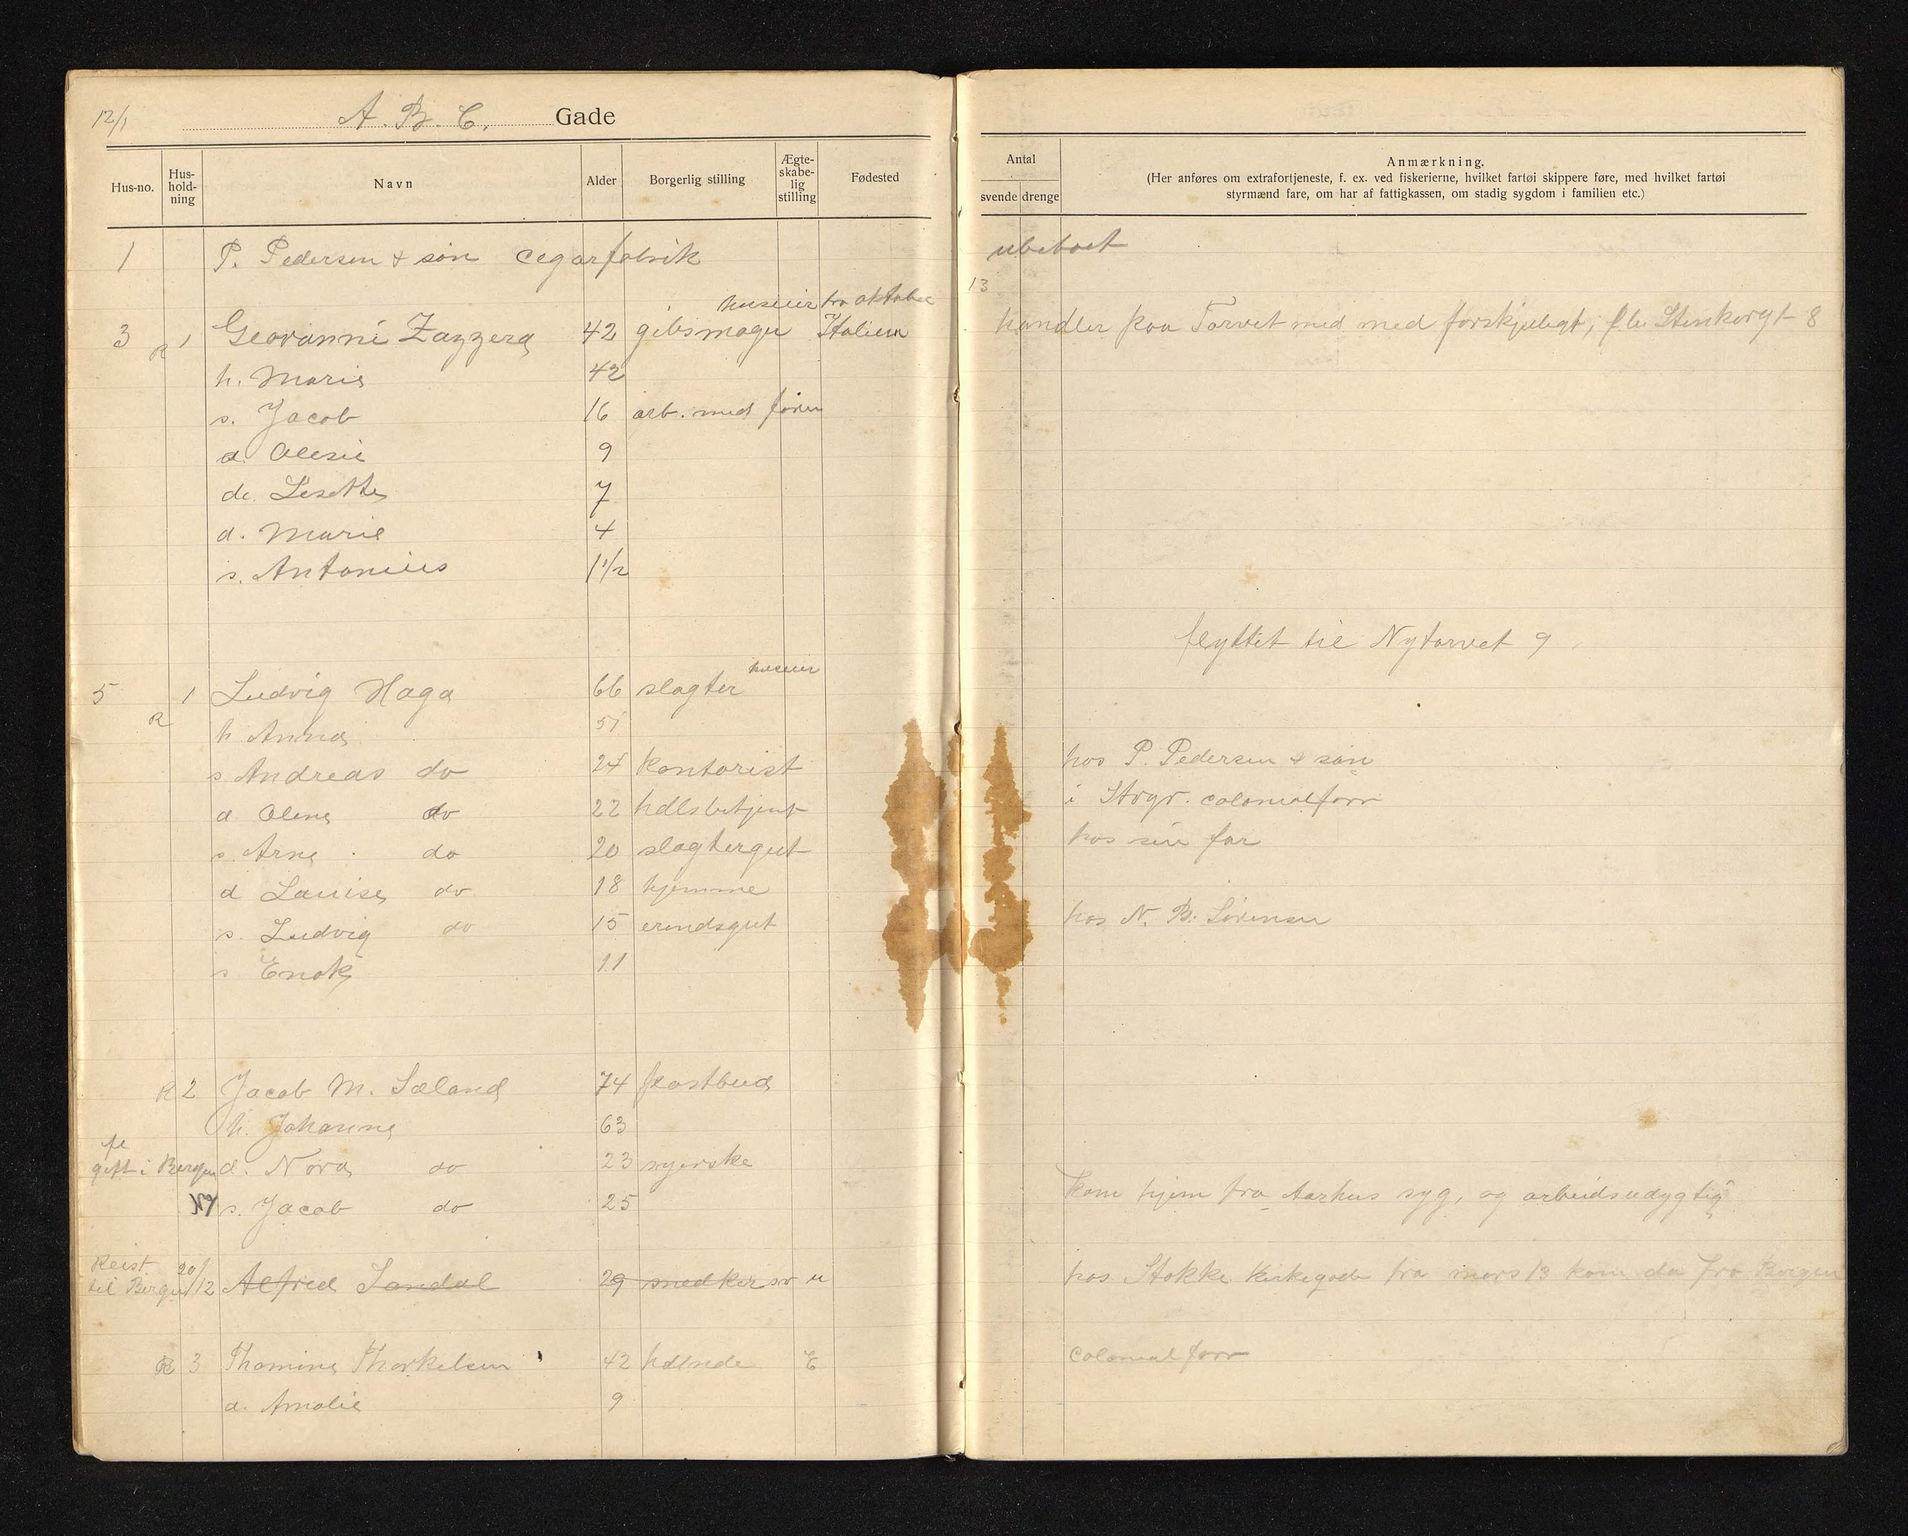 12/1 A. B. C. Gade
Hus-no. Hus-hold-ning Navn Alder Borgerlig stilling Ægte-skabe-lig stilling Fødested Antal svende drenge Anmærkning.
(Her anføres om extrafortjeneste, f. ex. ved fiskerierne, hvilket fartøi skippere føre, med hvilket fartøi
styrmænd fare, om har af fattigkassen, om stadig sygdom i familien etc.)
1 P. Pedersen & søn cegarfabrik ubeboet
huseier fra oktober 13
3 R 1 Geovanni Zazzera 42 gibsmager Italien handler paa Torvet med med forskjelligt, fl. Stenkargt 8
h. Marie 42
s. Jacob 16 arb. med faren
d. Olesie 9
do. Lesette 7
d. Marie 4
s. Antonius 1 1/2
flyttet til Nytorvet 9
5 1 Ludvig Haga 66 slagter huseier
R h Anna 51
s. Andreas do 24 kontorist hos P. Pedersen & søn
d. Olene do 22 hdlsbetjent i Storgr. colonialforr
s. Arne do 20 slagtergut hos sin far
d Louise do 18 hjemme
s. Ludvig do 15 erendsgut hos N. B. Sørensen
s Enok 11
R 2 Jacob M. Sæland 74 postbud
h. Johanne 63
fl
gift i Bergen d. Nora do 23 syerske
NY s. Jacob do 25 kom hjem fra Aarhus syg, og arbeidsudygtig
Reist
til Bergen 20/12 Alfred Sandal 29 snedkersv u hos Stokke Kirkegade fra mars 13 kom da fra Bergen
R 3 Thomine Thorkelsen 42 hdlnde E colonialforr
d. Amalie 9